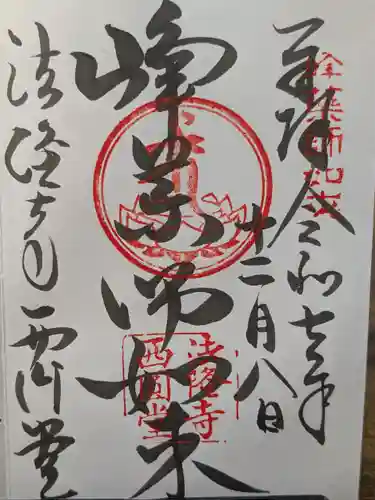 奉拝 令和七年
十二月八日
峰薬師如来
法隆寺 西円堂
峰薬師如来
法隆寺
西圓堂